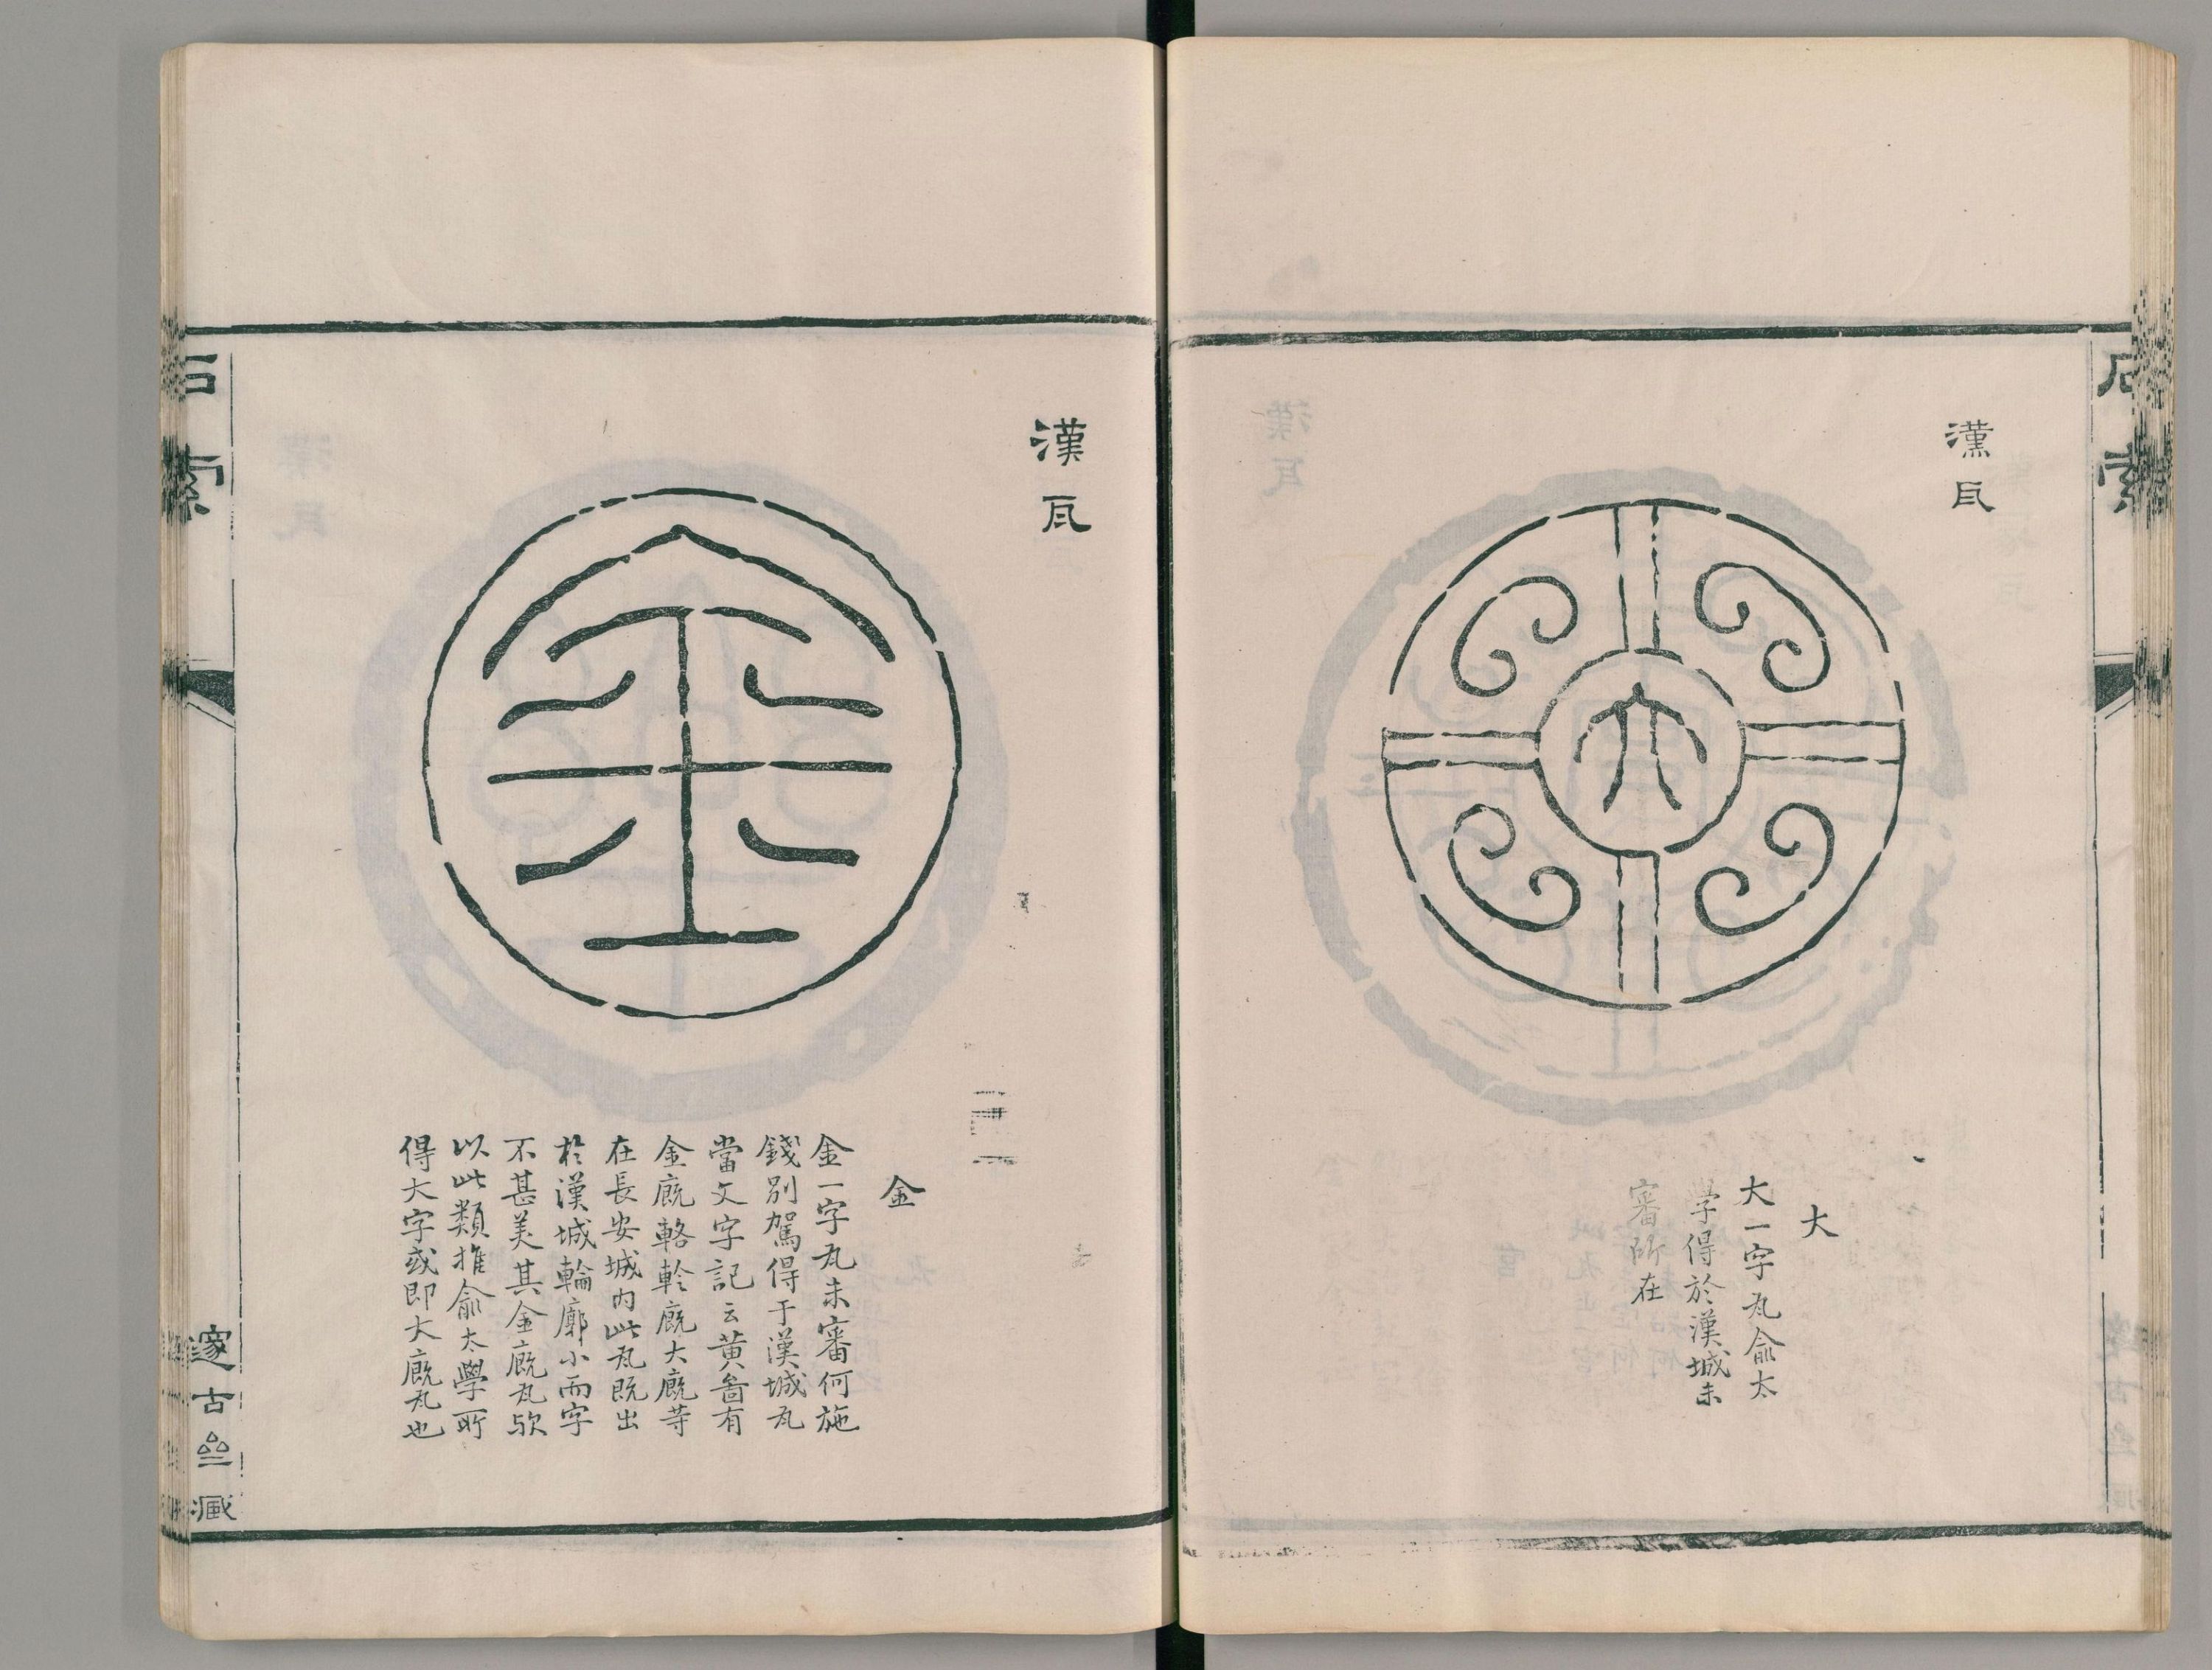 石索
漢瓦
大
大
大一字瓦俞太
學得於漢城未
審所在
漢瓦
金
金
金一字瓦未審何施
錢別駕得于漢城瓦
當文字記云黄啚有
金廐輅軨廐大廐等
在長安城内此瓦既出
於漢城輪廓小而字
不甚美其金廐瓦歟
以此類推俞太學所
得大字或即大廐瓦也
石索
邃古亝藏